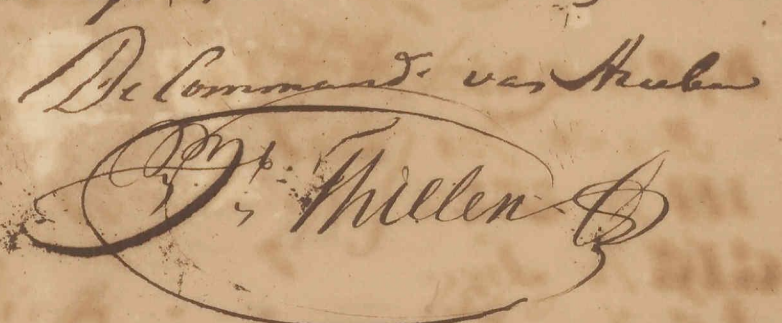 De Command.r van Aruba
Thielen